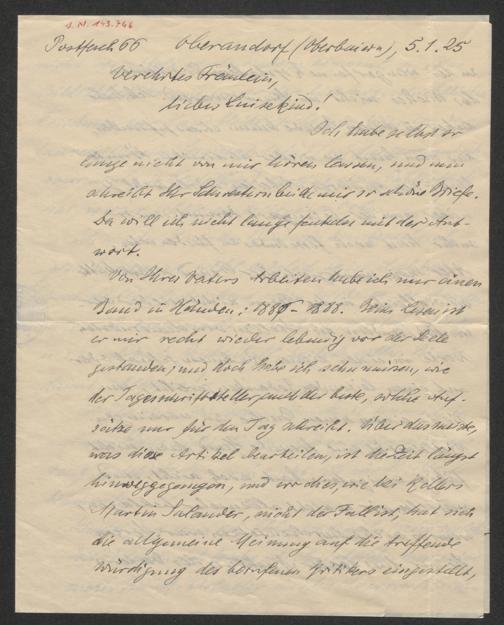 I. N. 193.746
Postfach 66 Oberaudorf (Oberbaiern), 5.1.25
Verehrtes Fräulein,
liebes Luisekind!
Ich habe selbst so
lange nicht von mir hören lassen, und nun
schreibt Ihr Schwestern beide mir so schöne Briefe.
Da will ich nicht lange fackeln mit der Ant-
wort.
Von Ihres Vaters Arbeiten habe ich nur einen
Band in Händen: 1885 - 1888. Beim Lesen ist
er mir recht wieder lebendig vor der Seele
gestanden, und doch habe ich sehen müssen, wie
der Tagesschriftsteller, auch der beste, solche Auf-
sätze nur für den Tag schreibt. Über das meiste,
was diese Artikel beurteilen, ist die Zeit längst
hinweggegangen, und wo dies, wie bei Kellers
Martin Salander, nicht der Fall ist, hat sich
die allgemeine Meinung auf die treffende
Würdigung des berufenen Kritikers eingestellt,